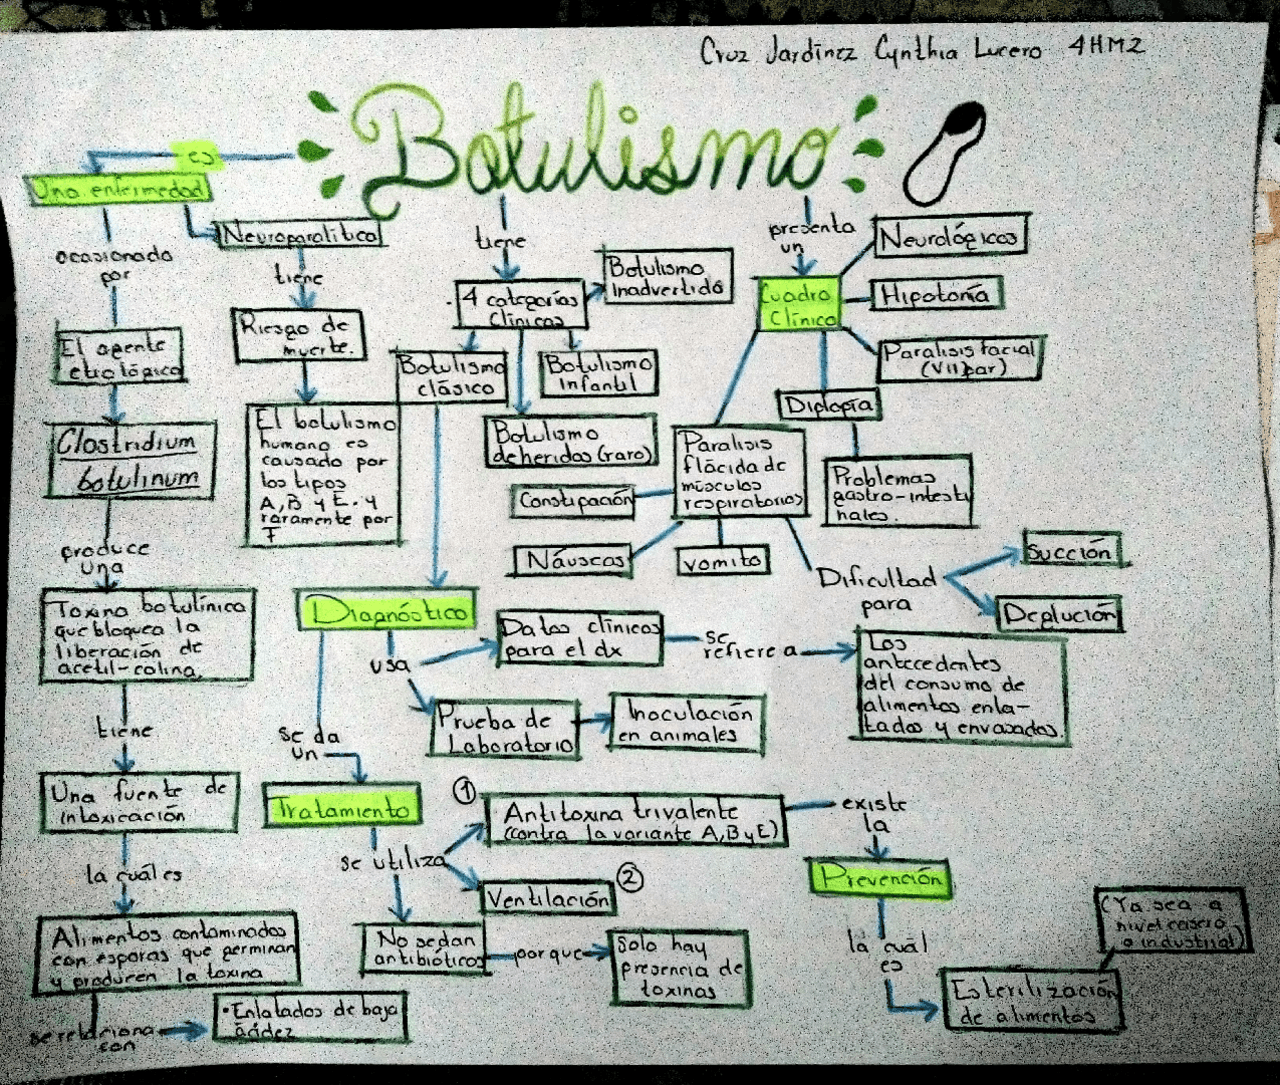 Cruz Jardínez Cynthia Lucero 4HM2
Botulismo
es
Una enfermedad
Neuroparalítica
ocasionada
por
tiene
El agente
etiológico
Riesgo de
muerte.
Clostridium
botulinum
El botulismo
humano es
causado por
los tipos
A, B y E. y
raramente por
F
produce
una
Toxina botulínica
que bloquea la
liberación de
acetil-colina.
tiene
Una fuente de
intoxicación
la cuál es
Alimentos contaminados
con esporas que germinan
y producen la toxina
se relaciona
con
• Enlatados de baja
ácidez
tiene
4 categorías
Clínicas
Botulismo
Inadvertido
Botulismo
clásico
Botulismo
Infantil
Botulismo
de heridas (raro)
presenta
un
Cuadro
Clínico
Neurológicos
Hipotonía
Paralisis facial
(VII par)
Diplopía
Problemas
gastro-intesti
nales.
Paralisis
flácida de
músculos
respiratorios
Constipación
Náuseas
vomito
Dificultad
para
Succión
Deglución
Diagnóstico
usa
Datos clínicos
para el dx
se
refiere a
Los
antecedentes
del consumo de
alimentos enla-
tados y envasados.
Prueba de
Laboratorio
Inoculación
en animales
se da
un
Tratamiento
se utiliza
1
Antitoxina trivalente
(contra la variante A, B y E)
2
Ventilación
No se dan
antibióticos
porque
Solo hay
presencia de
toxinas
existe
la
Prevención
la cuál
es
Esterilización
de alimentos
(Ya sea a
nivel casero
o industrial)